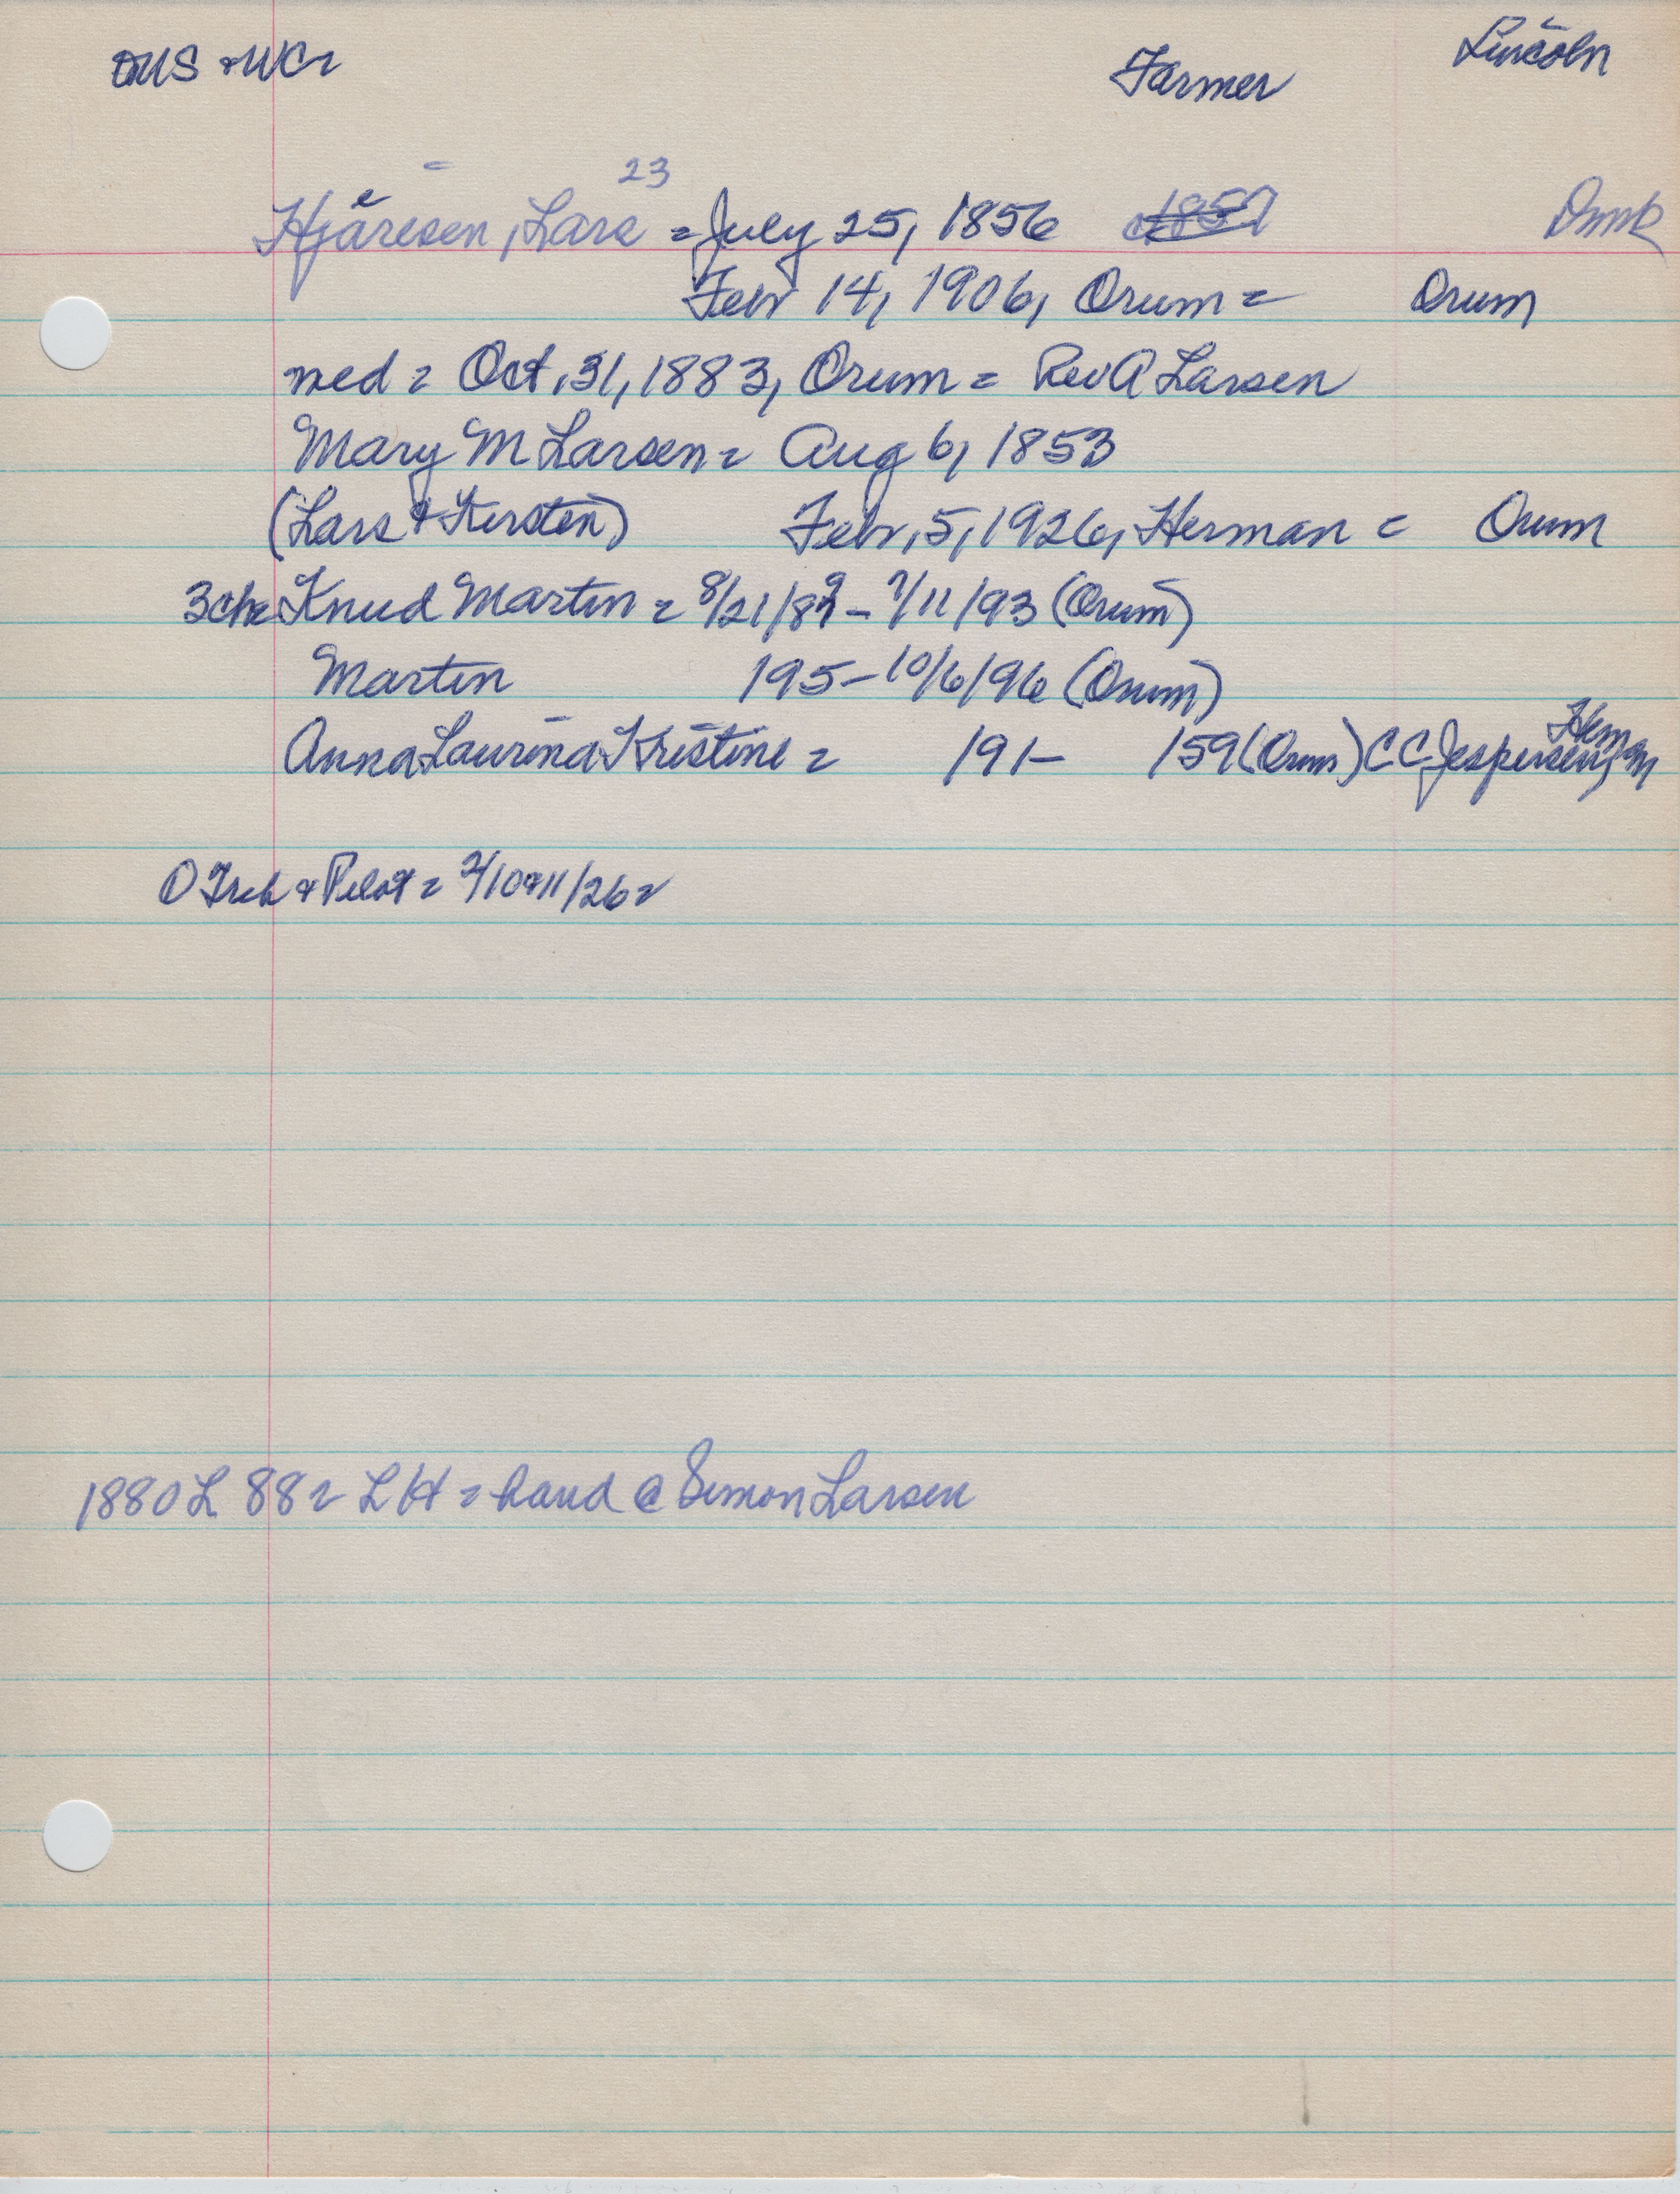 OMS & WC= Farmer Lincoln
23
Hjaresen, Lars = July 25, 1856 c1857 Dmk
Febr 14, 1906, Orum = Orum
med = Oct. 31, 1883, Orum = Rev A Larsen
Mary M Larsen = Aug 6, 1853
(Lars & Kirsten) Febr. 5, 1926, Herman = Orum
3ch= Knud Martin = 8/21/89 - 7/11/93 (Orum)
Martin 195 - 10/6/96 (Orum)
Anna Laurina Kristine = 191 - 159 (Orum) C C Jespersen, Herman
O Trib & Pilot = 2/10&11/26=
1880 L 88= L H = hand @ Simon Larsen